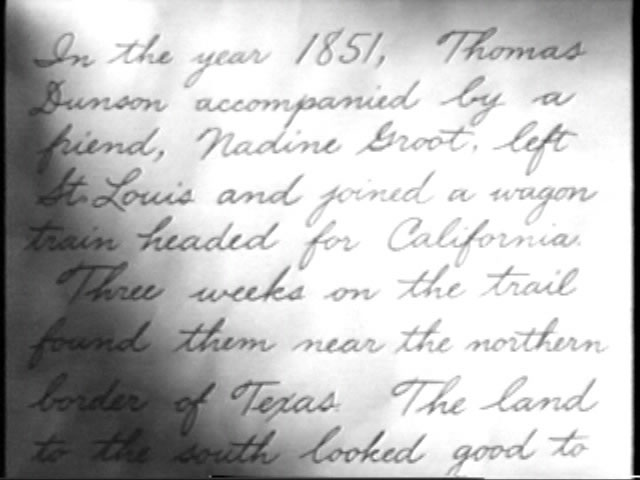 In the year 1851, Thomas
Dunson accompanied by a
friend, Nadine Groot, left
St. Louis and joined a wagon
train headed for California.
Three weeks on the trail
found them near the northern
border of Texas. The land
to the south looked good to